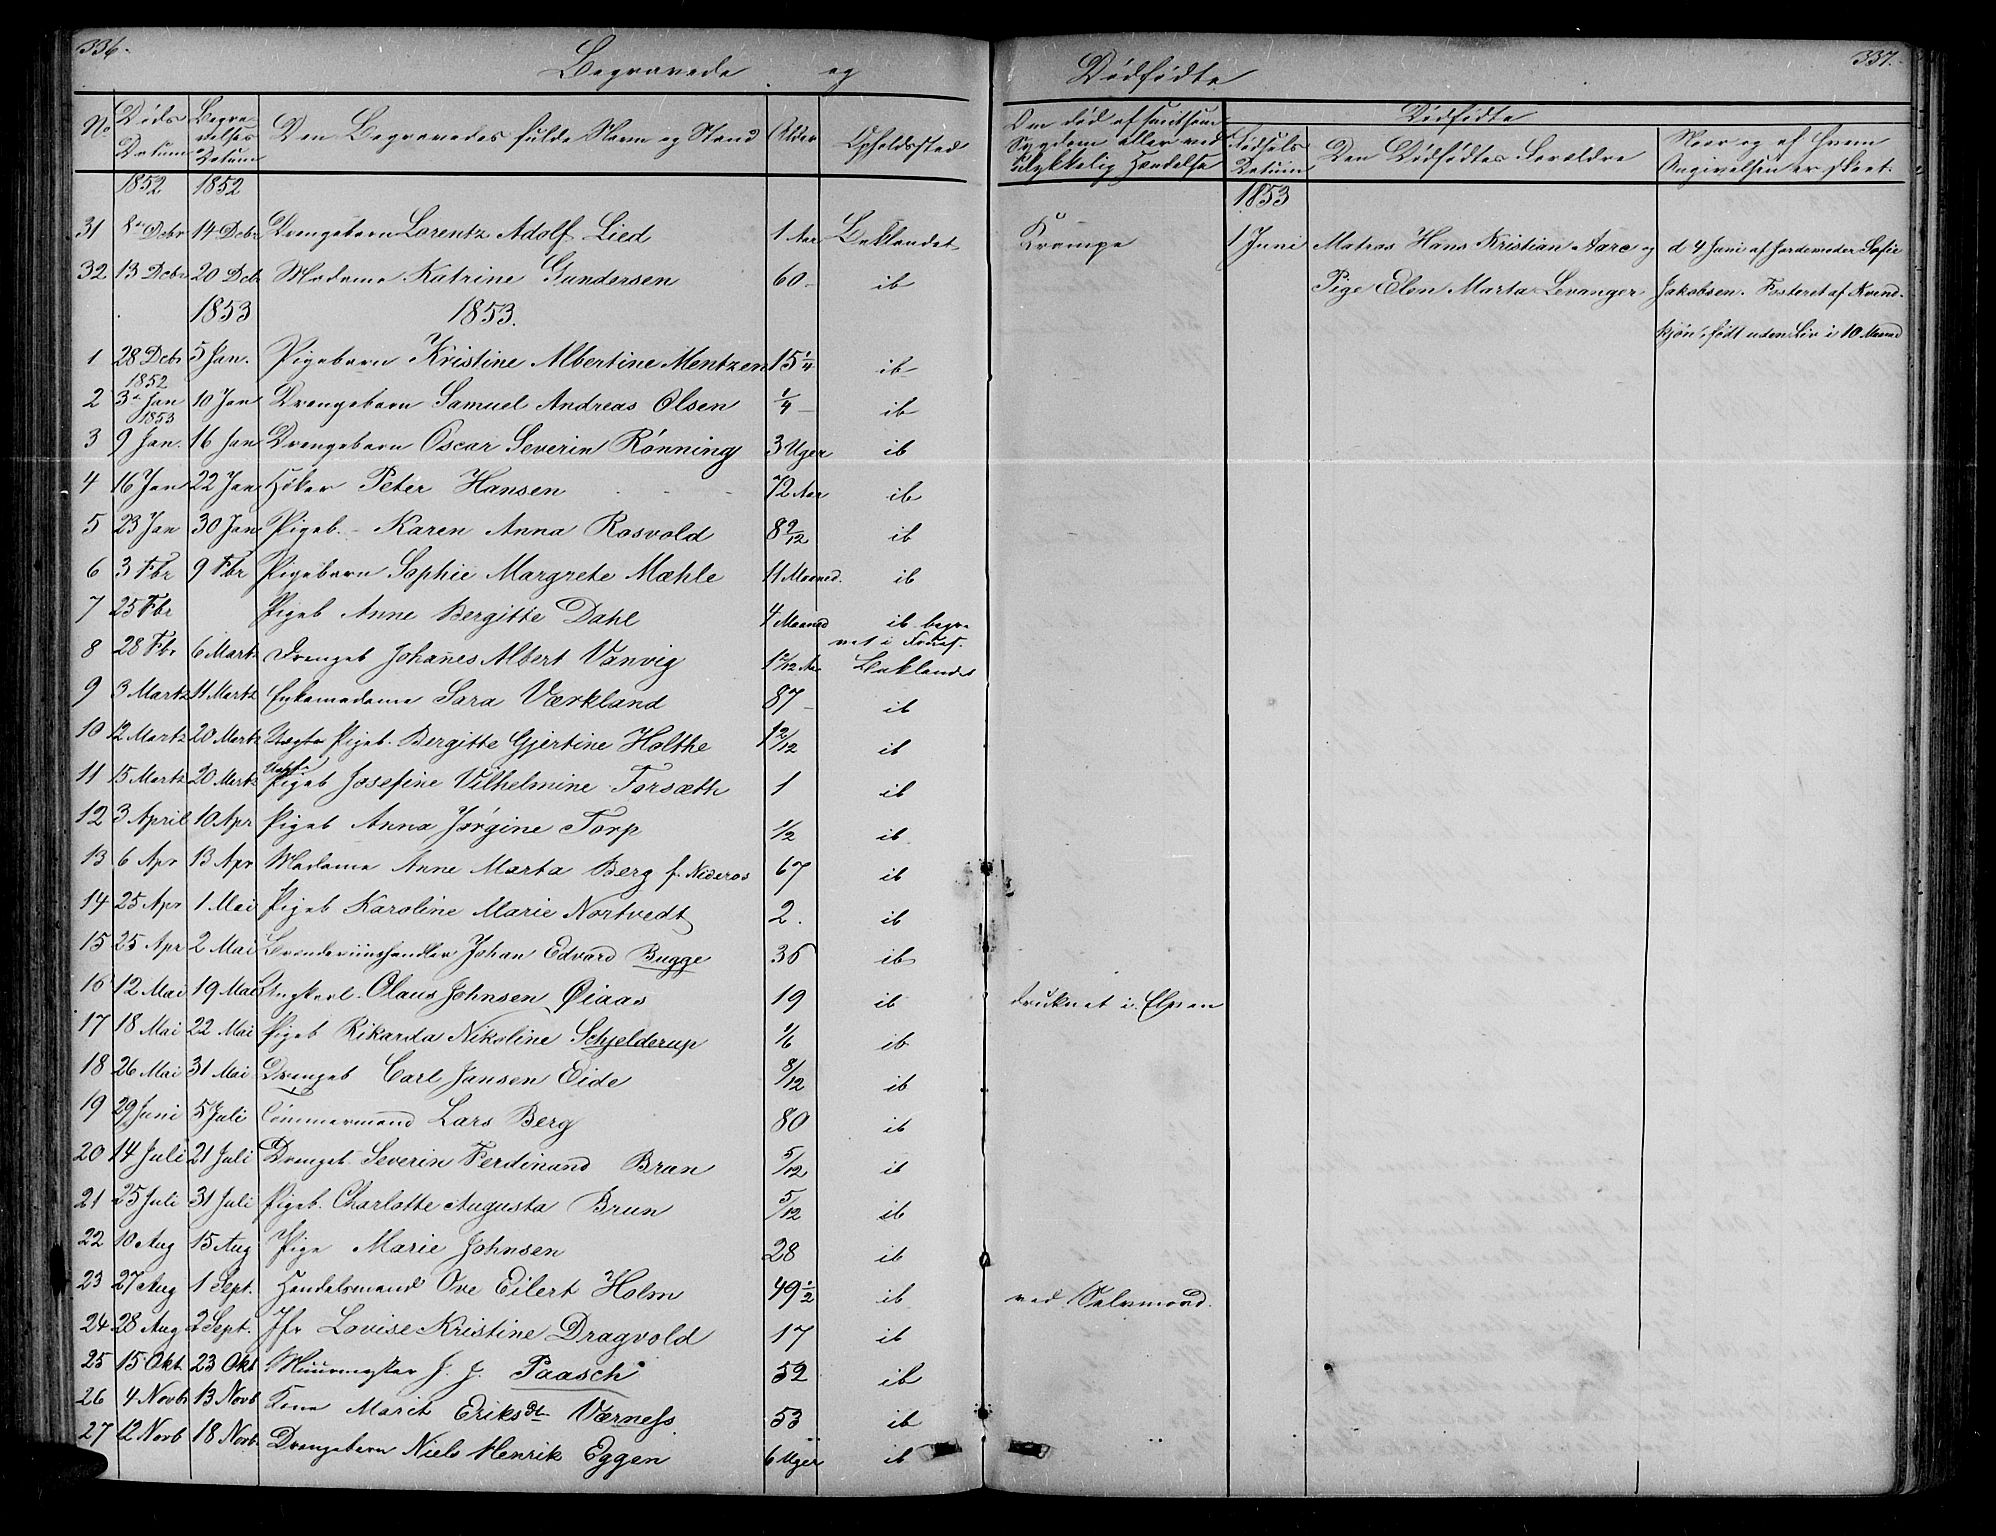 336.
Begravede og
No Døds Datum Begravelses Datum Den Begravedes fulde Navn og Stand Alder Opholdssted
1852 1852
31 8de Dcbr 14 Dcbr Drengebarn Lorentz Adolf Lied 1 Aar Baklandet
32 13 Dcbr 20 Dcb Madame Katrine Gundersen 60 - ib
1853 1853.
1 28 Dcbr 1852 5 Jan. Pigebarn Kristine Albertine Mentzen 15 1/4 ib
2 3de Jan 1853 10 Jan Drengebarn Samuel Andreas Olsen 1/4 - ib
3 9 Jan. 16 Jan Drengebarn Oscar Severin Rønning 3 Uger ib
4 16 Jan 22 Jan Høker Peter Hansen 72 Aar ib
5 23 Jan 30 Jan Pigeb. - Karen Anna Rosvold 8 9/12 ib
6 3 Fbr 9 Fbr Pigebarn Sophie Margrete Mæhle 11 Maaned. ib
7 25 Fbr Pigeb Anne Bergitte Dahl 4 Maaned ib begra
vet i
8 28 Fbr 6 Mart. Drengeb Johanes Albert Vanvig Baklandet
9 3 Martz 11 Martz Enkemadame Sara Værkland 87 - ib
10 12 Martz 20 Martz Uægte Pigeb. Bergitte Gjertine Holthe 1 2/12 ib
11 15 Martz 20 Martz Uægte Pigeb Josefine Vilhelmine Forsæth 1 ib
12 3 April 10 Apr Pigeb Anna Jørgine Torp 1/2 ib
13 6 Apr 13 Apr Madame Anne Marta Berg f. Nideros 67 ib
14 25 Apr 1 Mai Pigeb Karoline Marie Nortvedt 2. ib
15 25 Apr 2 Mai Brændeviinshandler Johan Edvard Bugge 36 ib
16 12 Mai 19 Mai Olaus Johnsen Øiaas 19 ib
17 18 Mai 22 Mai Pigeb Rikarda Nikoline Schjelderup 1/6 ib
18 26 Mai 31 Mai Drengeb Carl Jansen Eide 8/12 ib
19 29 Juni 5 Juli Tømmermand Lars Berg 80 ib
20 14 Juli 21 Juli Drengeb. Severin Ferdinand Brun 5/12 ib
21 25 Juli 31 Juli Pigeb. Charlotte Augusta Brun 5/12 ib
22 10 Aug 15 Aug Pige Marie Johnsen 28 ib
23 27 Aug 1 Sept. Handelsmand Ove Eilert Holm 49 1/2 ib
24 28 Aug 2 Sept. Jfr Lovise Kristine Dragvold 17 ib
25 15 Okt. 23 Okt Muurmester J. J. Paasch 52 ib
26 4 Novb 13 Novb. Kone Marit Eriksdt Værness. 53 ib
27 12 Novb 18 Novb. Drengebarn Niels Henrik Eggen 6 Uger ib
337.
Dødfødte
Om død af smitsom Sygdom eller ved Ulykkelig Hændelse Dødfødte
Fødsels Datum Den Dødfødtes Forældre Naar og af hvem Angivelsen er skeet.
1853
Krampe 1 Juni Matros Hans Kristian Aare og d 4 Juni af Jordemoder Sofie
Pige Elen Marta Levanger Jakobsen. Fosteret af Kvind-
kjøn, født uden Liv i 10 Maaned
druknet i Elven
ved Selvmord.